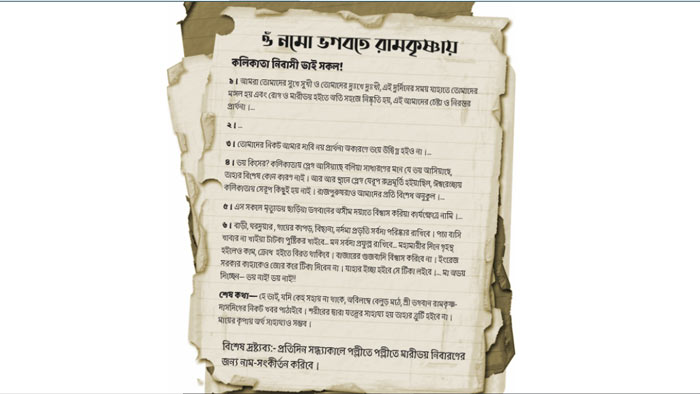 ওঁ নমো ভগবতে রামকৃষ্ণায়
কলিকাতা নিবাসী ভাই সকল!
১। আমরা তোমাদের সুখে সুখী ও তোমাদের দুঃখে দুঃখী, এই দুর্দিনের সময় যাহাতে তোমাদের
মঙ্গল হয় এবং রোগ ও মারীভয় হইতে অতি সহজে নিষ্কৃতি হয়, এই আমাদের চেষ্টা ও নিরন্তর
প্রার্থনা।...
২। ...
৩। তোমাদের নিকট আমার দাবি নয় প্রার্থনা অকারণে ভয়ে উদ্বিগ্ন হইও না।...
৪। ভয় কিসের? কলিকাতায় প্লেগ আসিয়াছে বলিয়া সাধারণের মনে যে ভয় আসিয়াছে,
তাহার বিশেষ কোন কারণ নাই। আর আর স্থানে প্লেগ যেরূপ রুদ্রমূর্তি হইয়াছিল, ঈশ্বরেচ্ছায়
কলিকাতায় সেরূপ কিছুই হয় নাই। রাজপুরুষরাও আমাদের প্রতি বিশেষ অনুকূল।...
৫। এস সকলে মৃত্যুভয় ছাড়িয়া ভগবানের অসীম দয়াতে বিশ্বাস করিয়া কার্যক্ষেত্রে নামি।...
৬। বাড়ী, ঘরদুয়ার, গায়ের কাপড়, বিছানা, নর্দমা প্রভৃতি সর্বদা পরিষ্কার রাখিবে। পচা বাসি
খাবার না খাইয়া টাটকা পুষ্টিকর খাইবে... মন সর্বদা প্রফুল্ল রাখিবে... মহামারীর দিনে গৃহস্থ
হইলেও কাম, ক্রোধ হইতে বিরত থাকিবে। বাজারের গুজবাদি বিশ্বাস করিবে না। ইংরেজ
সরকার কাহাকেও জোর করে টিকা দিবেন না। যাহার ইচ্ছা হইবে সে টিকা লইবে।... মা অভয়
দিচ্ছেন— ভয় নাই! ভয় নাই!!
শেষ কথা— হে ভাই, যদি কেহ সহায় না থাকে, অবিলম্বে বেলুড় মাঠে, শ্রী ভগবান রামকৃষ্ণ-
দাসদিগের নিকট খবর পাঠাইবে। শরীরের দ্বারা যতদূর সাহায্য হয় তাহার ত্রুটি হইবে না।
মায়ের কৃপায় অর্থ সাহায্যও সম্ভব।
বিশেষ দ্রষ্টব্য:- প্রতিদিন সন্ধ্যাকালে পল্লীতে পল্লীতে মারীভয় নিবারণের
জন্য নাম-সংকীর্তন করিবে।